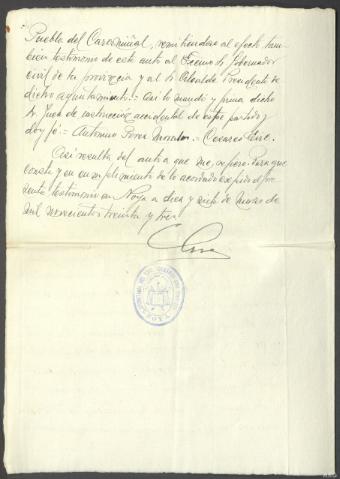 Puebla del Caramiñal, remitiendose al efecto tam-
bien testimonio de este auto al Excmo Sr Gobernador
civil de la provincia y al Sr Alcalde Presidente de
dicho ayuntamiento.= Asi lo mandó y firma dicho
Sr. Juez de instrucción accidental de este partido y
doy fé.= Antonio Perez = Cesareo
Asi resulta del auto a que me refiero. Para que
conste y en cumplimiento de lo acordado expido el pre-
sente testimonio en Noya a diez y seis de Marzo de
mil novecientos treinta y tres